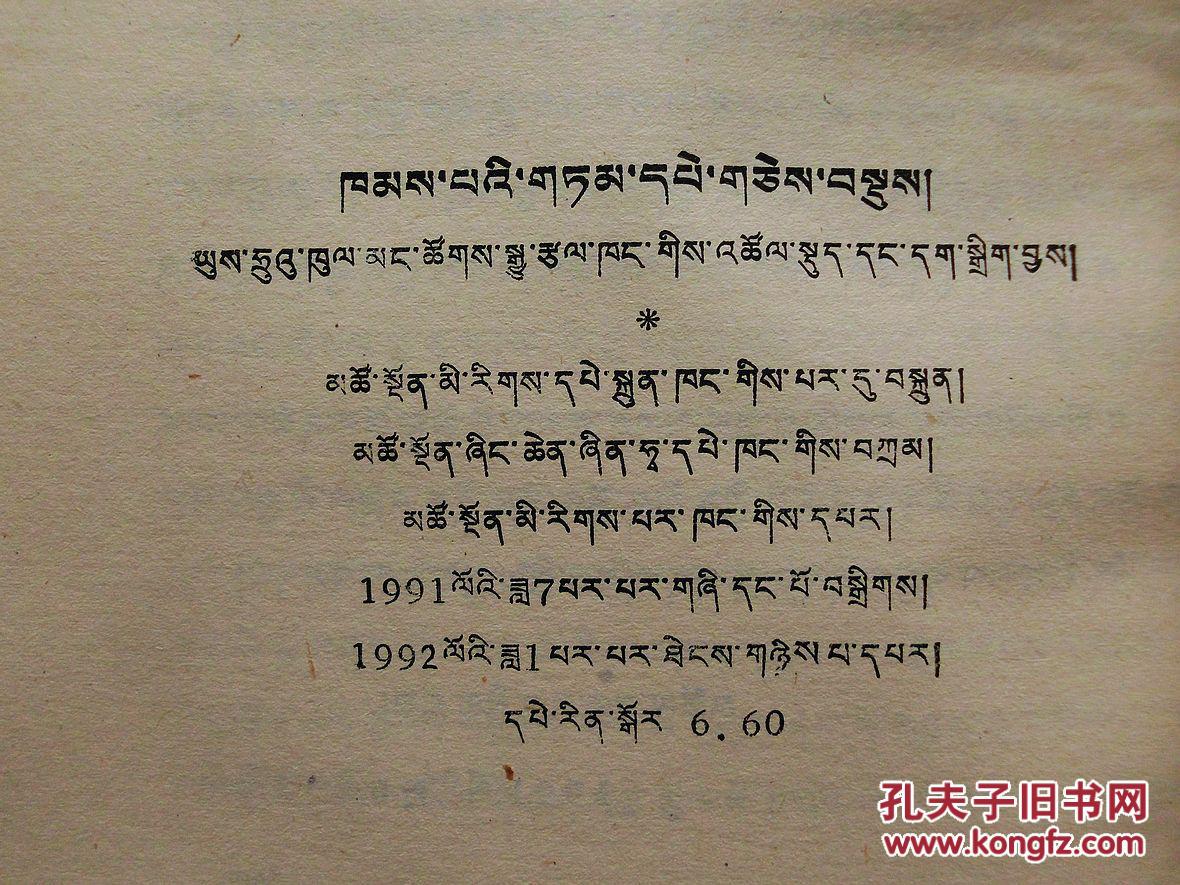 ཁམས་པའི་གཏམ་དཔེ་གཅེས་བསྡུས།
ཡུས་ཧྲུའུ་ཁུལ་མང་ཚོགས་སྒྱུ་རྩལ་ཁང་གིས་འཚོལ་སྡུད་དང་དག་སྒྲིག་བྱས།
*
མཚོ་སྔོན་མི་རིགས་དཔེ་སྐྲུན་ཁང་གིས་པར་དུ་བསྐྲུན།
མཚོ་སྔོན་ཞིང་ཆེན་ཞིན་ཧྭ་དཔེ་ཁང་གིས་བཀྲམ།
མཚོ་སྔོན་མི་རིགས་པར་ཁང་གིས་དཔར།
1991ལོའི་ཟླ7པར་པར་གཞི་དང་པོ་བསྒྲིགས།
1992ལོའི་ཟླ1པར་པར་ཐེངས་གཉིས་པ་དཔར།
དཔེ་རིན་སྒོར 6.60
孔夫子旧书网
www.kongfz.com